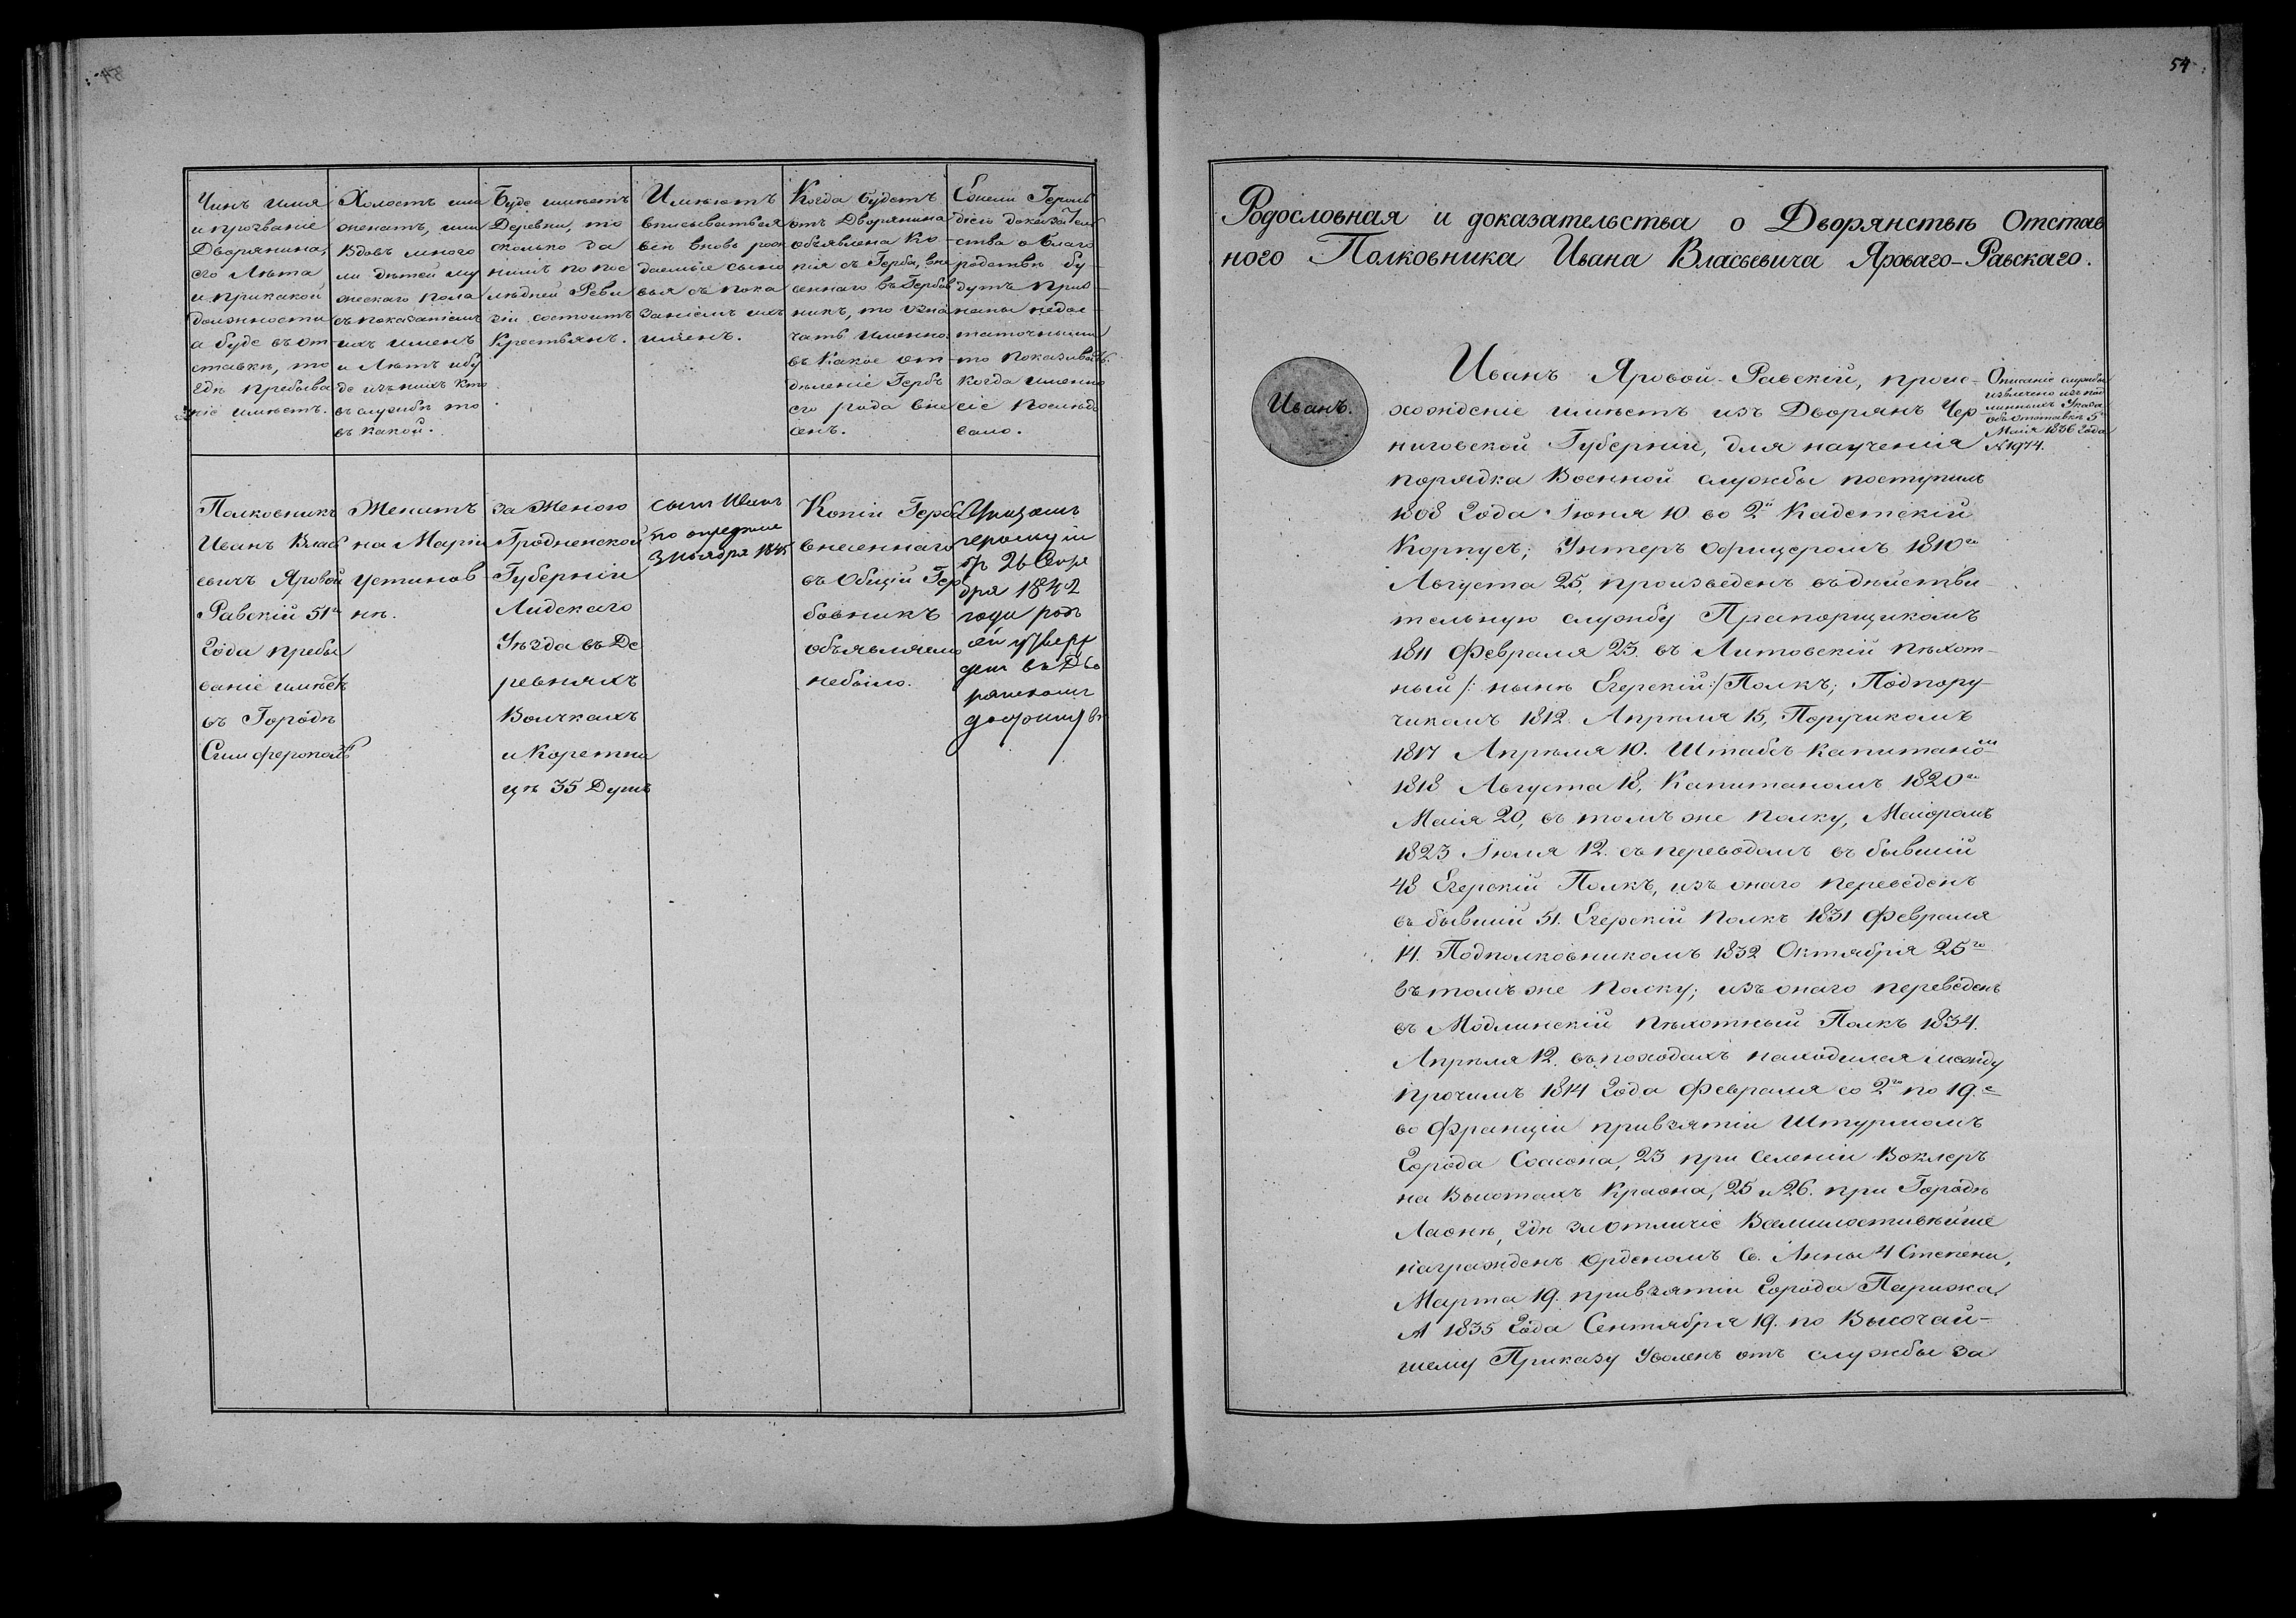 54
Чинъ имя
и прозваніе
Дворянина,
его Лѣта
и при какой
должности
а буде въ от
ставкѣ, то
гдѣ пребыва
ніе имѣетъ.
Холостъ или
женатъ, или
Вдовъ много
ли дѣтей му
жескаго пола
съ показаніемъ
ихъ именъ
и Лѣтъ и бу
де изъ нихъ кто
въ службѣ то
въ какой.
Буде имѣетъ
Деревни, то
сколько за
нимъ по пос
лѣдней Реви
зіи состоитъ
Крестьянъ.
Имѣютъ
вписываться
всѣ вновь рож
даемые сыно
вья съ пока
заніемъ ихъ
именъ.
Когда будетъ
отъ Дворянина
объявлена Ко
пія съ Герба, вне
сеннаго въ Гербов
никъ, то озна
чать именно
въ какое от
дѣленіе Гербъ
его рода вне
сенъ.
Ежели Героль
діею доказатель
ства о благо
родствѣ бу
дутъ приз
наны недос
таточными
то показывать
когда именно
сіе послѣдо
вало.
Полковникъ
Иванъ Влась
евичъ Яровой
Равскій 51го
Года пребы
ваніе имѣетъ
въ Городѣ
Симферополѣ
Женитъ
на Маріи
Устинов
нѣ.
За Женою
Гродненской
Губерніи
Лидскаго
Уѣзда въ Де
ревняхъ
Волчкахъ
и Коретни
цѣ 35 Душъ
сынъ Иванъ
по опредѣле
3 Ноября 1845
Копіи Герба
внесеннаго
въ Общій Гер
бовникъ
объявляемо
небыло.
Указомъ
герольдіи
26
1842
года родъ
ей утверж
денъ въ Дво
рянскомъ
достоинствѣ
Родословная и доказательства о Дворянствѣ Отстав
ного Полковника Ивана Власьевича Яроваго-Равскаго.
Иванъ.
Иванъ Яровой-Равскій, проис-
хожденіе имѣетъ изъ Дворянъ Чер-
ниговской Губерніи, для наученія
порядка Военной службы поступилъ
1808 Года Іюня 10 во 2й Кадетскій
Корпусъ; Унтеръ Офицеромъ 1810го
Августа 25, произведенъ въ дѣйстви-
тельную службу Прапорщикомъ
1811 Февраля 23. въ Литовскій пѣхот-
ный /: нынѣ Егерскій :/ Полкъ; Подпору-
чикомъ 1812. Апрѣля 15, Поручикомъ
1817 Апрѣля 10. Штабсъ Капитаномъ
1818 Августа 18, Капитаномъ 1820го
Маія 20, въ томъ же полку, Маіоромъ
1823 Іюля 12. съ переводомъ въ бывшій
48 Егерскій Полкъ, изъ онаго переведенъ
въ бывшій 51. Егерскій полкъ 1831 Февраля
14. Подполковникомъ 1832 Октября 25го
въ томъ же полку; изъ онаго переведенъ
въ Модлинскій пѣхотный Полкъ 1834.
Апрѣля 12. въ походахъ находился между
прочимъ 1814 Года Февраля со 2го по 19е
во Франціи при взятіи Штурмомъ
Города Соасона, 23 при селеніи Воклеръ
на Высотахъ Краона, 25 и 26. при Городѣ
Лаонѣ, гдѣ за отличіе Всемилостивѣйше
награжденъ Орденомъ Св. Анны 4 Степени,
Марта 19. при взятіи Города Парижа.
А 1835 Года Сентября 19. по Высочай-
шему Приказу уволенъ отъ службы за
Описаніе службы
извлечено изъ под
линныхъ Указа
объ отставкѣ 5го
Маія 1836 Года
№ 1974.